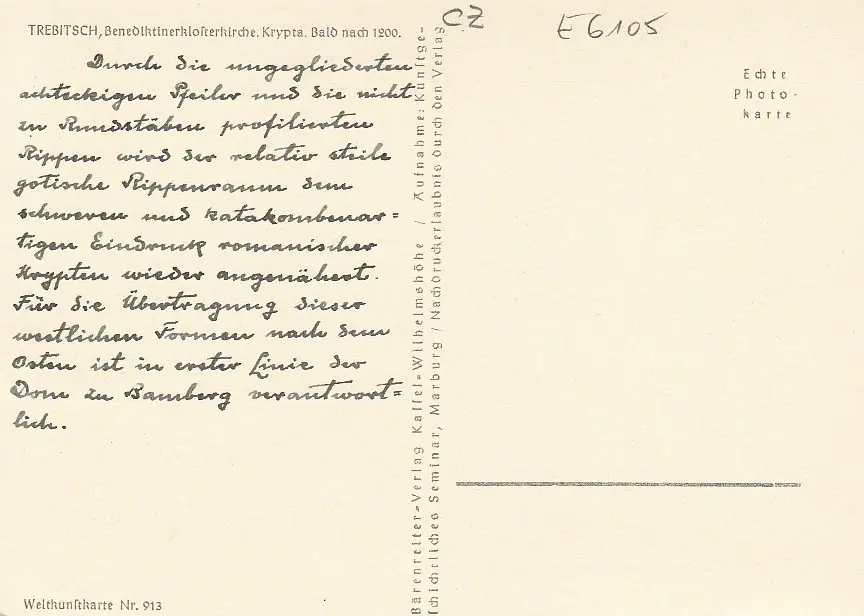 TREBITSCH, Benediktinerkloſterkirche. Krypta. Bald nach 1200.
Durch die ungegliederten
achteckigen Pfeiler und die nicht
zu Rundstäben profilierten
Rippen wird der relativ steile
gotische Rippenraum dem
schweren und katakombenar=
tigen Eindruck romanischer
Krypten wieder angenähert.
Für die Übertragung dieser
westlichen Formen nach dem
Osten ist in erster Linie der
Dom zu Bamberg verantwort=
lich.
Weltkunſtkarte Nr. 913
Bärenreiter-Verlag Kaſſel-Wilhelmshöhe / Aufnahme: Kunſtge-
ſchichtliches Seminar, Marburg / Nachdruckerlaubnis durch den Verlag
CZ
E6105
Echte
Photo-
karte